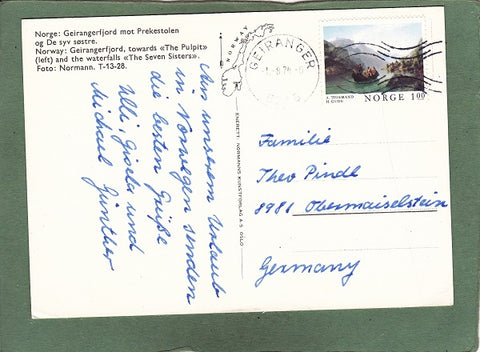 Norge: Geirangerfjord mot Prekestolen
og De syv søstre.
Norway: Geirangerfjord, towards «The Pulpit»
(left) and the waterfalls «The Seven Sisters».
Foto: Normann. T-13-28.
NORWAY
GEIRANGER
A. TIDEMAND
H. GUDE
NORGE 100
ENERETT: NORMANNS KUNSTFORLAG A/S OSLO
Aus unserem Urlaub
in Norwegen senden
die besten Grüße
Ulli, Gisela und
Michael Günther
Familie
Theo Pindl
8981 Obermaiselstein
Germany